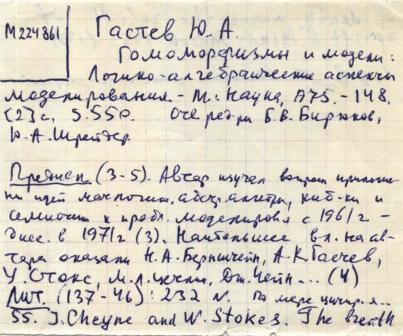 М224861
Гастев Ю. А.
Гомоморфизмы и модели:
Логико-алгебраические аспекты
моделирования - М: Наука, 1975. - 148,
(2) с, 5.550. Отв ред-ры Б.В. Бирюков,
Ю.А. Шрейдер.
Предисл (3-5). Автор изучал вопросы приложе-
ния идей матлогики, абстр. алгебры, киб-ки и
семиотики к пробл. моделирован с 1961г -
дисс. в 1971г (3). Наибольшее вл. на ав-
тора оказали Н.А. Бернштейн, А.К Гастев,
У Стокс, М.Л. Цетлин, Дж. Чейн ... (4)
Лит. (137-46): 232 N.
55. J. Cheyne and W. Stokes. The breath